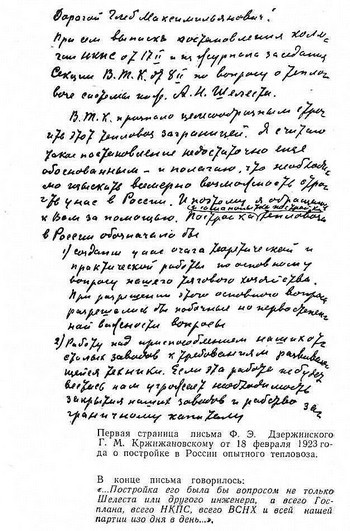 Дорогой Глеб Максимильянович!
При сем выписка постановления колле-
гии НКПС от 17 II и из журнала заседания
Секции В.Т.К. от 8 II по вопросу о теплово-
возе системы инж. А. Н. Шелеста.
В.Т.К. признало целесообразным строи-
ть этот тепловоз заграницей. Я считаю
такое постановление недостаточно еще
обоснованным – и полагаю, что необходи-
мо изыскать всемерно возможность строи-
ть у нас в России. И поэтому я обращаюсь
к Вам за помощью. Постройка тепловоза
в России обозначало бы
1) создание у нас очага теоретической и
практической работы по основному
вопросу нашего тягового хозяйства.
При разрешении этого основного вопроса
разрешались бы побочные но первостепен-
ной важности вопросы
2) Работу над приспособлением наших от-
сталых заводов к требованиям развиваю-
щейся техники. Если эта работа не будет
вестись нам угрожает необходимость
закрытия наших заводов и рабство за-
граничному капиталу
Первая страница письма Ф. Э. Дзержинского
Г. М. Кржижановскому от 18 февраля 1923 го-
да о постройке в России опытного тепловоза.
В конце письма говорилось:
«...Постройка его была бы вопросом не только
Шелеста или другого инженера, а всего Гос-
плана, всего НКПС, всего ВСНХ и всей нашей
партии изо дня в день...».